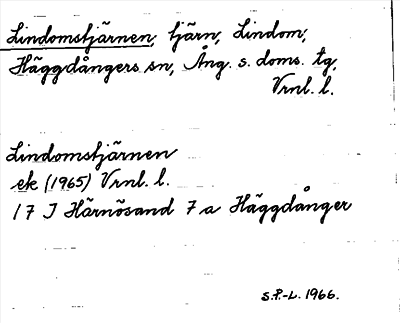 Lindomstjärnen, tjärn, Lindom,
Häggdångers sn, Ång. s. doms. tg,
Vrnl. l.
Lindomstjärnen
ek (1965) Vrnl. l.
17 J Härnösand 7 a Häggdånger
S.P.-L. 1966.